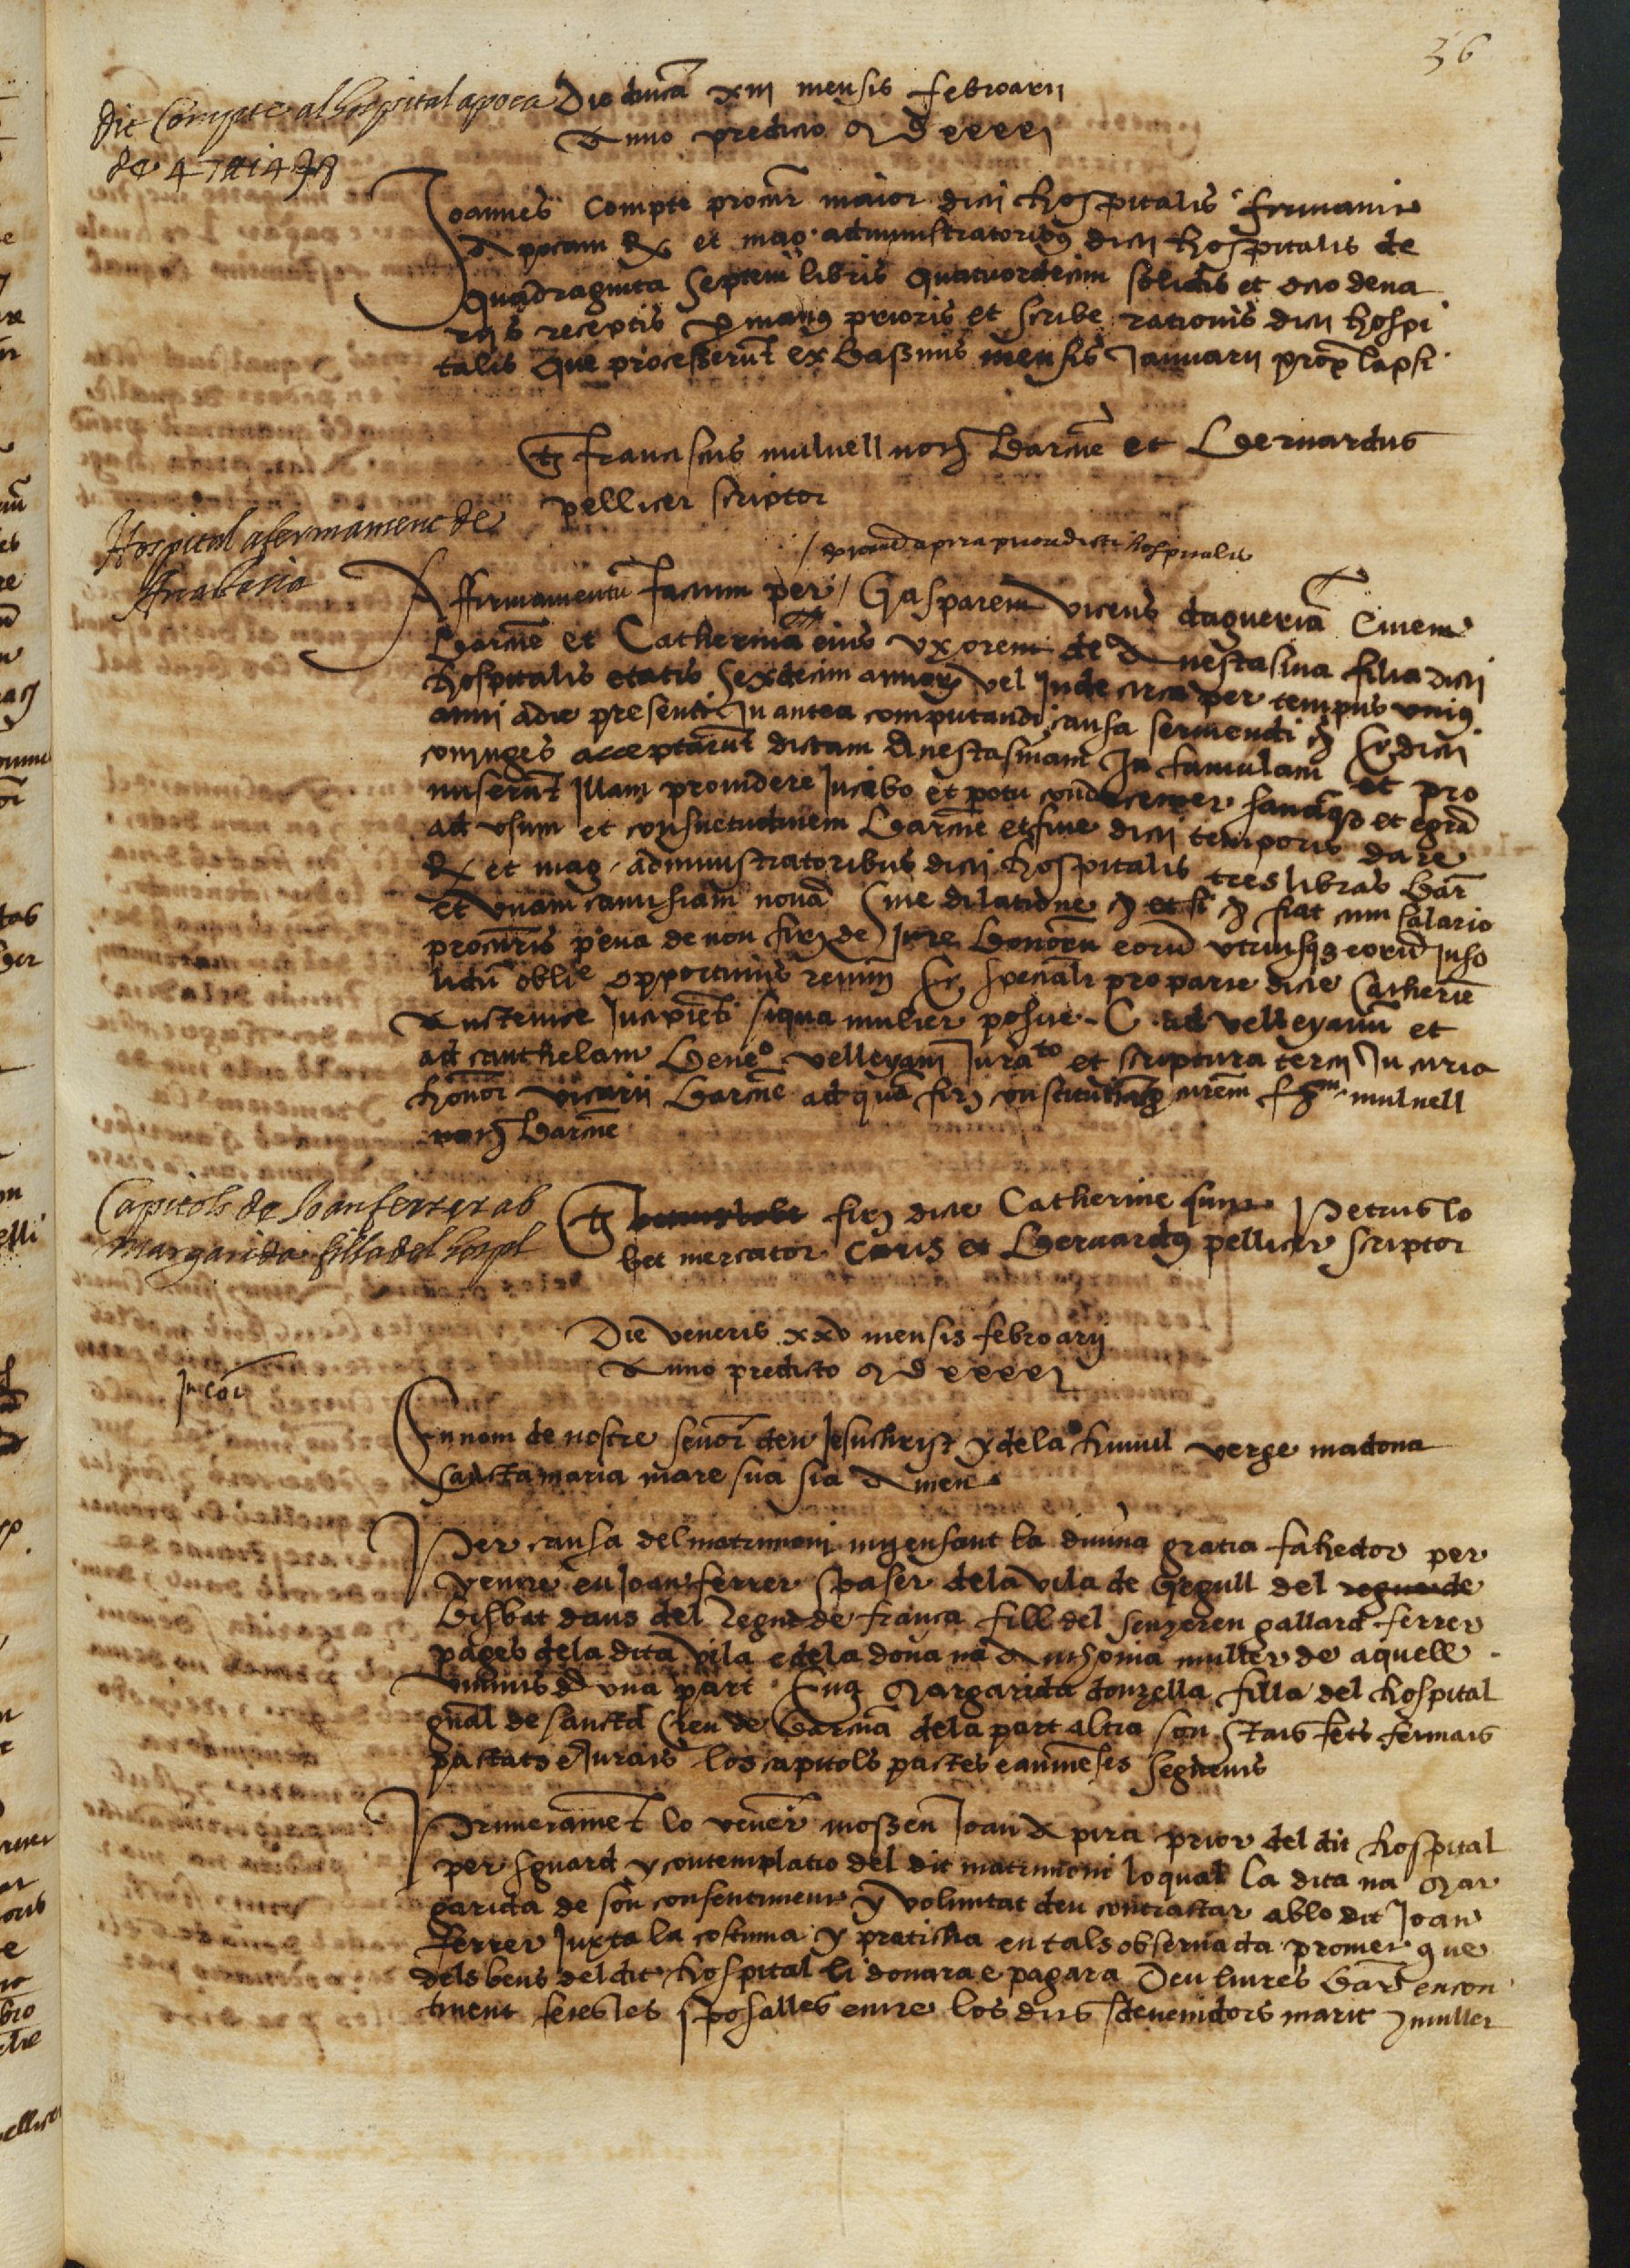 36
Die dnica xiii mensis febroarii
Anno predicto MDxxxxi
dit Compte al hospital apoca
de 47 # 14 s 8
Joannes Compte procur maior dicti hospitalis firmavit
Apocam R et mag. administratoribus dicti hospitalis de
quadraginta septem libris quatuordecim solidis et octo dena
riis receptis p manus prioris et scribe rationis dicti hospi
talis que processerunt ex bassinis mensis Januarii prox lapsi
ts franciscus mulnell not barcne et Bernardus
pellicer scriptor
Hospital afermament de
Anastasia
apira priorem dicti hospitalis
Affirmamentu factum per / Gasparem vicens dagueria Civem
barcne et Catherina eius uxorem de Anestasina filia dicti
hospitalis etatis sexdecim annor vel Inde circa per tempus unius
anni a die presenti In antea computandi causa serviendi Et dicti
coniuges acceptarunt dictam Anestasinam In famulam et pro
miserunt Illam providere In cibo et potu condecenter sanaq et egra
ad usum et consuetudinem barcne et fine dicti temporis dare
R et mag. administratoribus dicti hospitalis tres libras bar
et unam camisiam nova sine dilatione et fiat cum salario
procuris pena de non fir de Jure bonoru eoru utriusq eoru Inso
lidu oblie opportunis renun Et speciali pro parte dicte Catherine
Autentice Incipient siqua mulier posite C. ad velleyanu et
ad cauthelam bene velleyani Jurato et scriptura tercii In curia
honor vicarii barcne ad qua fir constitut curem frm mulnell
not barcne
Capitols de Joan ferrer ab
Margarida filla del hospl
ts fir dicte Catherine sunt Petrus lo
bet mercator Civis et Bernardus pellicer scriptor
Die veneris xxv mensis febroarij
Anno predicto MDxxxxi
In coi
En nom de nostre senor deu Jesuchrist y dela humil verge madona
sancta maria mare sua sia Amen
Per causa del matrimoni mijensant la divina gratia fahedor per
y entre en Joan ferrer spaser dela vila de Gegull del regne de
bisbat daus del Regne de franca fill del senyer en gallard ferrer
pages dela dita vila e dela dona na Anthonia muller de aquell
vivints de una part E na Margarida donzella filla del hospital
gnal de sancta Creu de barcna dela part altra son stats fets fermats
pactats e Jurats los capitols pactes e avinenses seguents
Primerament lo vener mossen Joan Apira prior del dit hospital
per sguard y contemplatio del dit matrimoni loqual la dita na Mar
garida de son consentiment y voluntat deu contractar ab lo dit Joan
ferrer Juxta la costuma y praticha en tals observada promet que
dels bens del dit hospital li donara e pagara Deu liures bars encon
tinent fetes les sposalles entre los dits sdevenidors marit y muller